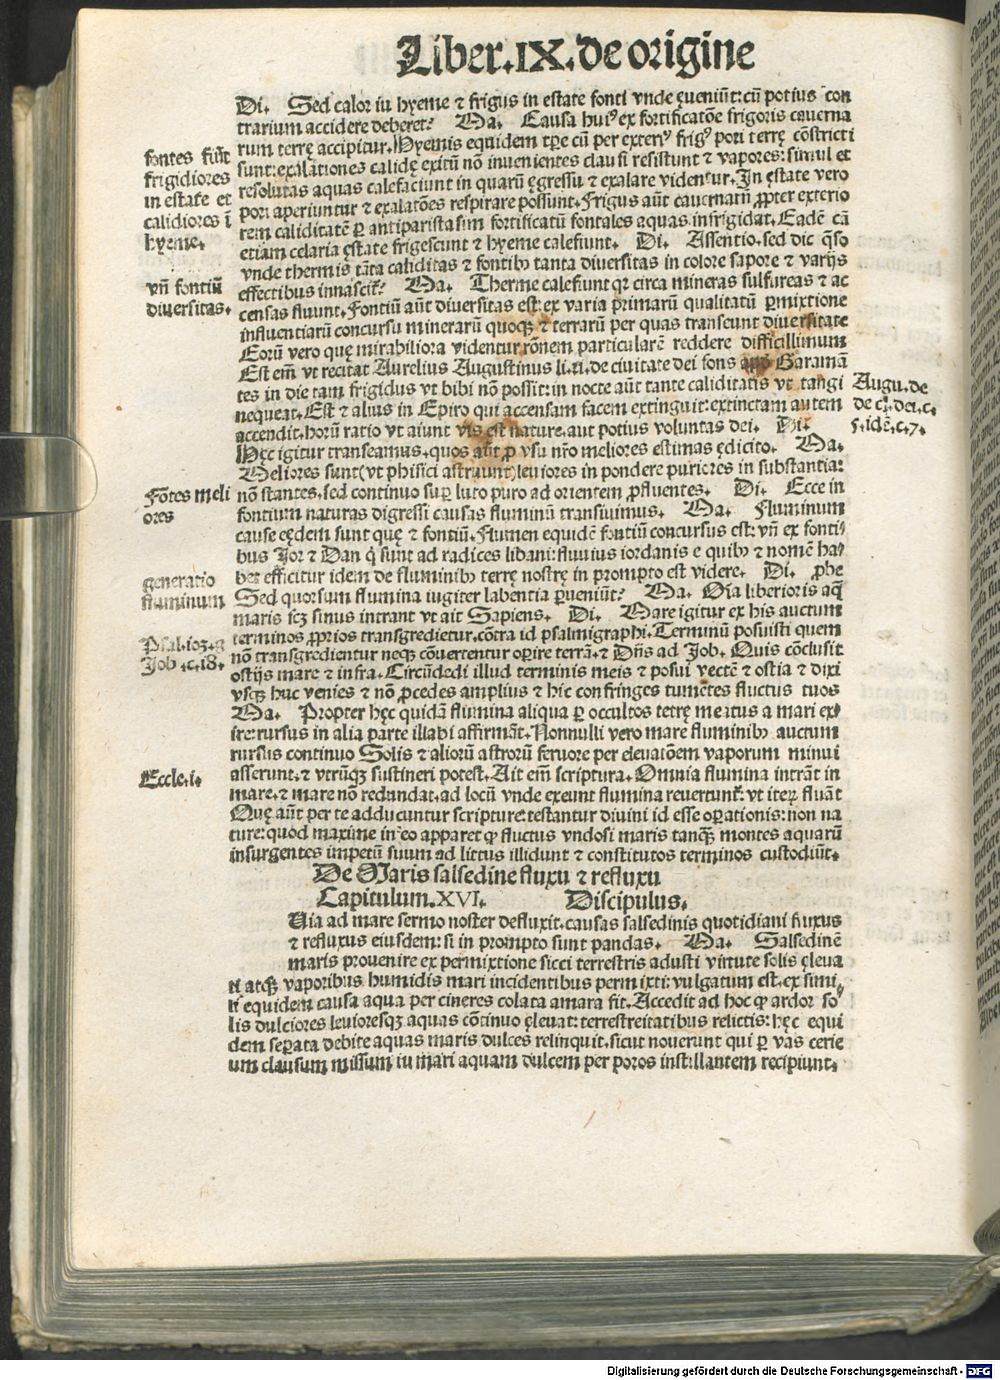 Liber.IX.de origine
Di. Sed calor in hyeme ⁊ frigus in estate fonti vnde ęueniũt: cũ potius con
trarium accidere deberet? Ma. Causa huiꝰ ex fortificatõe frigoris cauerna
rum terrę accipitur. Hyemis equidem tꝑe cũ per exterꝰ frigꝰ pori terrę cõstricti
sunt: exalationes calidę exitũ nõ inuenientes clausi resistunt ⁊ vapores: simul et
resolutas aquas calefaciunt in quarũ ęgressu ⁊ exalare videntur. In ęstate vero
pori aperiuntur ⁊ exalatões respirare possunt. Frigus aũt cauernarũ ꝓpter exterio
rem caliditatẽ ꝑ antiparistasim fortificatũ fontales aquas infrigidat. Eadẽ cã
etiam celaria ęstate frigescunt ⁊ hyeme calefiunt. Di. Assentio. sed dic q̃so
vnde thermis tãta caliditas ⁊ fontibꝰ tanta diuersitas in colore sapore ⁊ varijs
effectibus innascit̃? Ma. Therme calefiunt qꝛ circa mineras sulfureas ⁊ ac
censas fluunt. Fontiũ aũt diuersitas est: ex varia primarũ qualitatũ ꝑmixtione
influentiarũ concursu minerarũ quoqꝫ ⁊ terrarũ per quas transeunt diuersitate
Eorũ vero quę mirabiliora videntur rõnem particularẽ reddere difficillimum
Est em̃ vt recitat Aurelius Augustinus li.xi. de ciuitate dei fons apud Garamã
tes in die tam frigidus vt bibi nõ possit: in nocte aũt tante caliditatis vt tangi
nequeat. Est ⁊ alius in Epiro qui accensam facem extinguit: extinctam autem
accendit. horũ ratio vt aiunt vis est nature. aut potius voluntas dei. Di.
Hęc igitur transeamus. quos aũt ꝓ vsu nr̃o meliores estimas ędicito. Ma.
Meliores sunt (vt phisici astruunt) leuiores in pondere puriores in substantia:
nõ stantes. sed continuo suꝑ luto puro ad orientem ꝓfluentes. Di. Ecce in
fontium naturas digressi causas fluminũ transiuimus. Ma. Fluminum
cause eędem sunt quę ⁊ fontiũ. Flumen equidẽ fontiũ concursus est: vñ ex fonti
bus Jor ⁊ Dan q̃ sunt ad radices libani: fluuius iordanis e quibꝰ ⁊ nomẽ ha
bet efficitur idem de fluminibꝰ terrę nostrę in prompto est videre. Di. ꝓbe
Sed quorsum flumina iugiter labentia ꝑueniũt? Ma. Oĩa liberioris aq̃
maris scꝫ sinus intrant vt ait Sapiens. Di. Mare igitur ex his auctum
terminos ꝓprios transgredietur. cõtra id psalmigraphi. Terminũ posuisti quem
nõ transgredientur neqꝫ cõuertentur oꝑire terrã. ⁊ Dñs ad Job. Quis cõclusit
ostijs mare ⁊ infra. Circũdedi illud terminis meis ⁊ posui vectẽ ⁊ ostia ⁊ dixi
vsqꝫ huc venies ⁊ nõ ꝓcedes amplius ⁊ hic confringes tumẽtes fluctus tuos
Ma. Propter hęc quidã flumina aliqua ꝑ occultos terrę meatus a mari ex
ire: rursus in alia parte illabi affirmãt. Nonnulli vero mare fluminibꝰ auctum
rursus continuo Solis ⁊ aliorũ astrorũ feruore per eleuatiõem vaporum minui
asserunt. ⁊ vtrũqꝫ sustineri potest. Ait em̃ scriptura. Omnia flumina intrãt in
mare. ⁊ mare nõ redundat. ad locũ vnde exeunt flumina reuertunt̃. vt iteꝝ fluãt
Quę aũt per te adducuntur scripture: testantur diuini id esse oꝑationis: non na
ture: quod maxime in eo apparet ꝙ fluctus vndosi maris tanqꝫ montes aquarũ
insurgentes impetũ suum ad littus illidunt ⁊ constitutos terminos custodiũt.
De Maris salsedine fluxu ⁊ refluxu
Capitulum.XVI. Discipulus.
Uia ad mare sermo noster defluxit. causas salsedinis quotidiani fluxus
⁊ refluxus eiusdem: si in prompto sunt pandas. Ma. Salsedinẽ
maris prouenire ex permixtione sicci terrestris adusti virtute solis ęleua
ti atqꝫ vaporibus humidis mari incidentibus permixti: vulgatum est. ex simi
li equidem causa aqua per cineres colata amara fit. Accedit ad hoc ꝙ ardor so
lis dulciores leuioresqꝫ aquas cõtinuo ęleuat: terrestreitatibus relictis: hęc equi
dem seꝑata debite aquas maris dulces relinquit. sicut nouerunt qui ꝑ vas cerie
um clausum missum in mari aquam dulcem per poros instillantem recipiunt.
fontes fiũt
frigidiores
in estate et
calidiores ĩ
hyeme.
vñ fontiũ
diuersitas.
Fõtes meli
ores
generatio
fluminum
Psal.103.g
Job.c.i8.
Eccle.i.
Augu.de
de ci.dei.c.
5.idẽ.c.7.
Digitalisierung gefördert durch die Deutsche Forschungsgemeinschaft - DFG